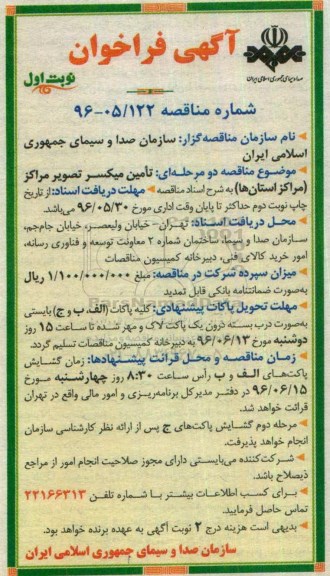 آگهی فراخوان
صدا و سیمای جمهوری اسلامی ایران
نوبت اول
شماره مناقصه ۰۵/۱۲۲-۹۶
نام سازمان مناقصه‌گزار: سازمان صدا و سیمای جمهوری
اسلامی ایران
موضوع مناقصه دو مرحله‌ای: تأمین میکسر تصویر مراکز
(مراکز استان‌ها) به شرح اسناد مناقصه مهلت دریافت اسناد: از تاریخ
چاپ نوبت دوم حداکثر تا پایان وقت اداری مورخ ۹۶/۰۵/۳۰ می‌باشد.
محل دریافت اسناد: تهران- خیابان ولیعصر، خیابان جام‌جم،
سازمان صدا و سیما، ساختمان شماره ۲ معاونت توسعه و فناوری رسانه،
امور خرید کالای فنی، دبیرخانه کمیسیون مناقصات
میزان سپرده شرکت در مناقصه: مبلغ ۱/۱۰۰/۰۰۰/۰۰۰ ریال
به‌صورت ضمانتنامه بانکی قابل تمدید
مهلت تحویل پاکات پیشنهادی: کلیه پاکات (الف، ب و ج) بایستی
به‌صورت درب بسته درون یک پاکت لاک و مهر شده تا ساعت ۱۵ روز
دوشنبه مورخ ۹۶/۰۶/۱۳ به دبیرخانه کمیسیون مناقصات تسلیم گردد.
زمان مناقصه و محل قرائت پیشنهادها: زمان گشایش
پاکت‌های الف و ب رأس ساعت ۸:۳۰ روز چهارشنبه مورخ
۹۶/۰۶/۱۵ در دفتر مدیرکل برنامه‌ریزی و امور مالی واقع در تهران
قرائت خواهد شد.
مرحله دوم گشایش پاکت‌های ج پس از ارائه نظر کارشناسی سازمان
انجام خواهد پذیرفت.
شرکت‌کننده می‌بایستی دارای مجوز صلاحیت انجام امور از مراجع
ذیصلاح باشد.
برای کسب اطلاعات بیشتر با شماره تلفن ۲۲۱۶۶۳۱۳
تماس حاصل فرمایید.
بدیهی است هزینه درج ۲ نوبت آگهی به عهده برنده خواهد بود.
سازمان صدا و سیمای جمهوری اسلامی ایران